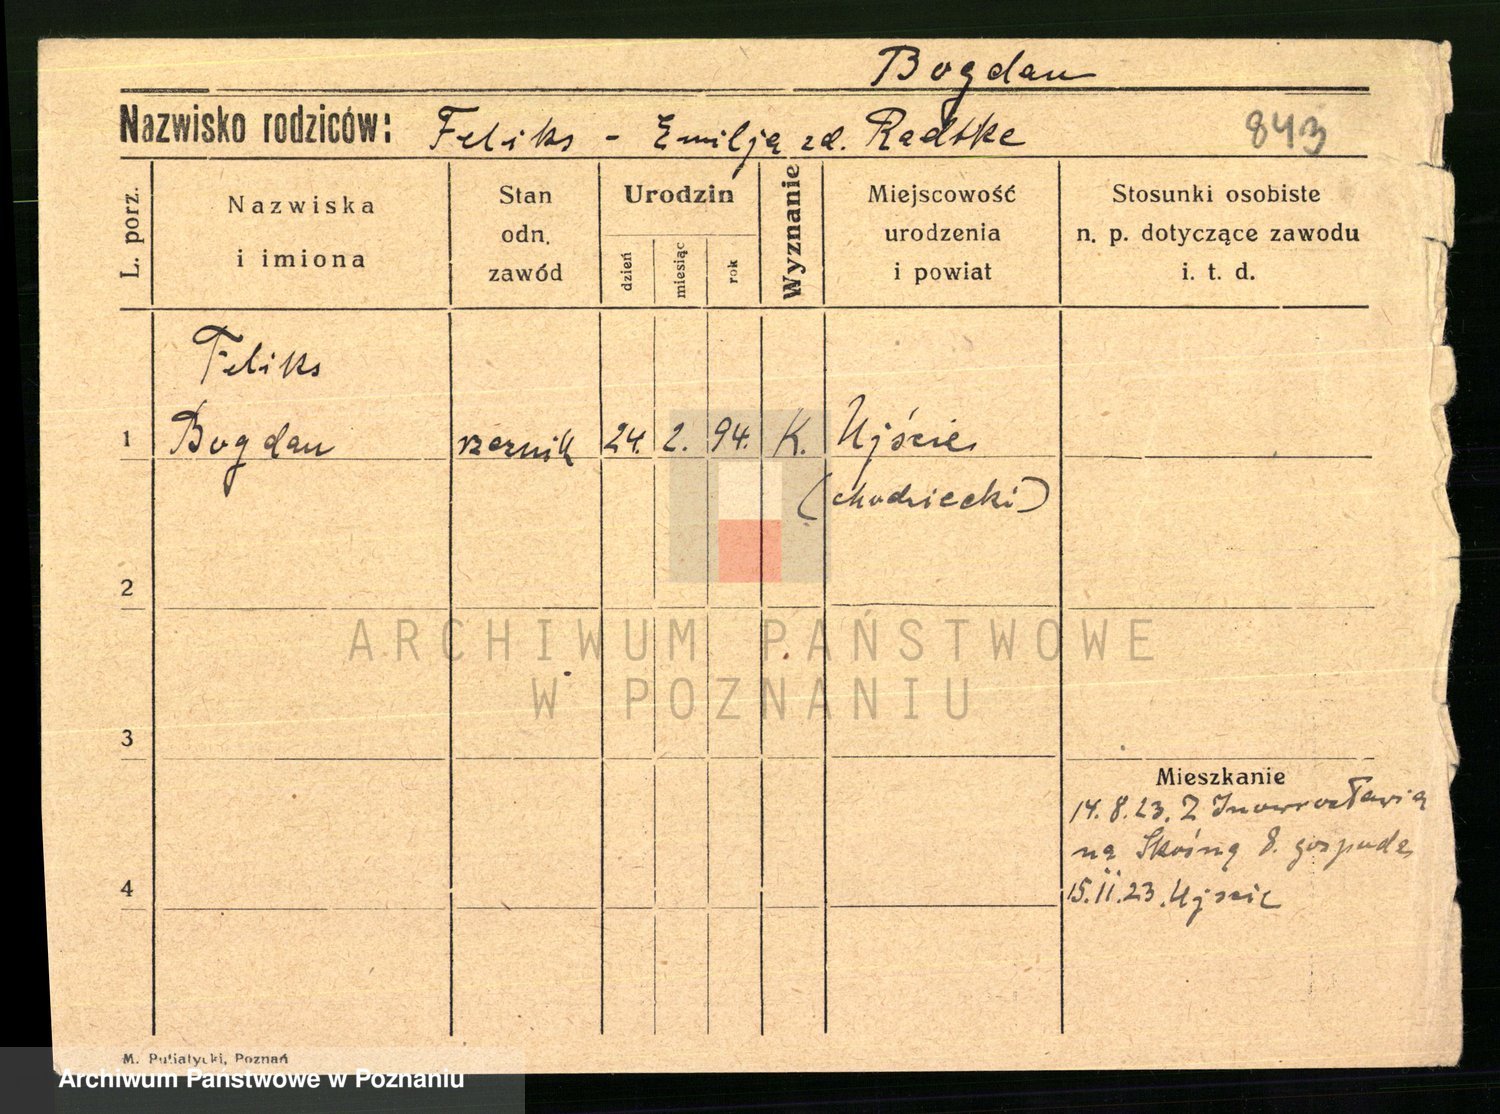 Bogdan
Nazwisko rodziców: Feliks - Emilja zd. Radtke 843
L. porz.
Nazwiska
i imiona
Stan
odn.
zawód
Urodzin
dzień
miesiąc
rok
Wyznanie
Miejscowość
urodzenia
i powiat
Stosunki osobiste
n. p. dotyczące zawodu
i. t. d.
Feliks
1 Bogdan 24. 2. 94. K. Ujście
(chodziecki)
2
ARCHIWUM PAŃSTWOWE
W POZNANIU
3
Mieszkanie
14. 8. 23. Z Inowrocławia
na 8. gospoda
4
15. 11. 23. Ujście
M. Putiatycki, Poznań
Archiwum Państwowe w Poznaniu